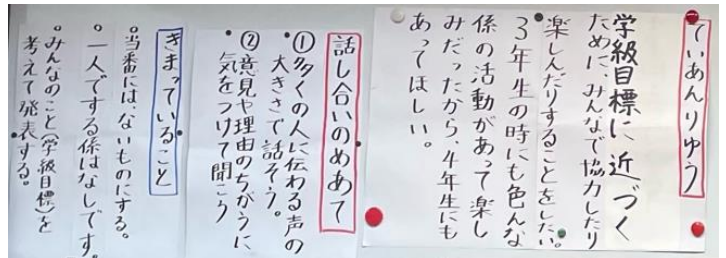 ていあんりゆう
学級目標に近づく
ために、みんなで協力したり
楽しんだりすることをしたい。
3年生の時にも色んな
係の活動があって楽し
みだったから、4年生にも
あってほしい。
話し合いのめあて
①多くの人に伝わる声の
大きさで話そう。
②意見や理由のちがうに
気をつけて聞こう
きまっていること
。当番には、ないものにする。
。一人でする係はなしです。
。みんなのこと(学級目標)を
考えて発表する。